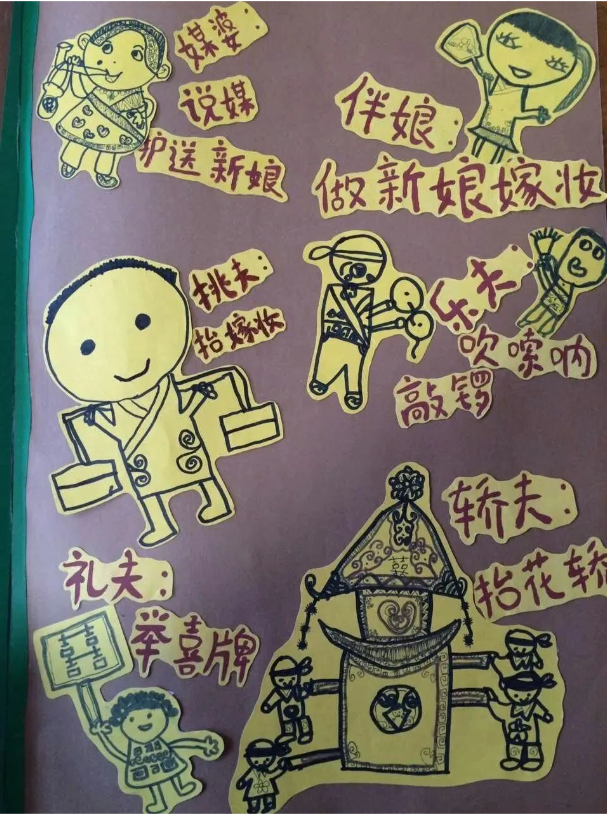 媒婆:
说媒
护送新娘
伴娘:
做新娘嫁妆
挑夫:
抬嫁妆
乐夫:
吹唢呐
敲锣
轿夫:
抬花轿
礼夫:
举喜牌
囍
囍